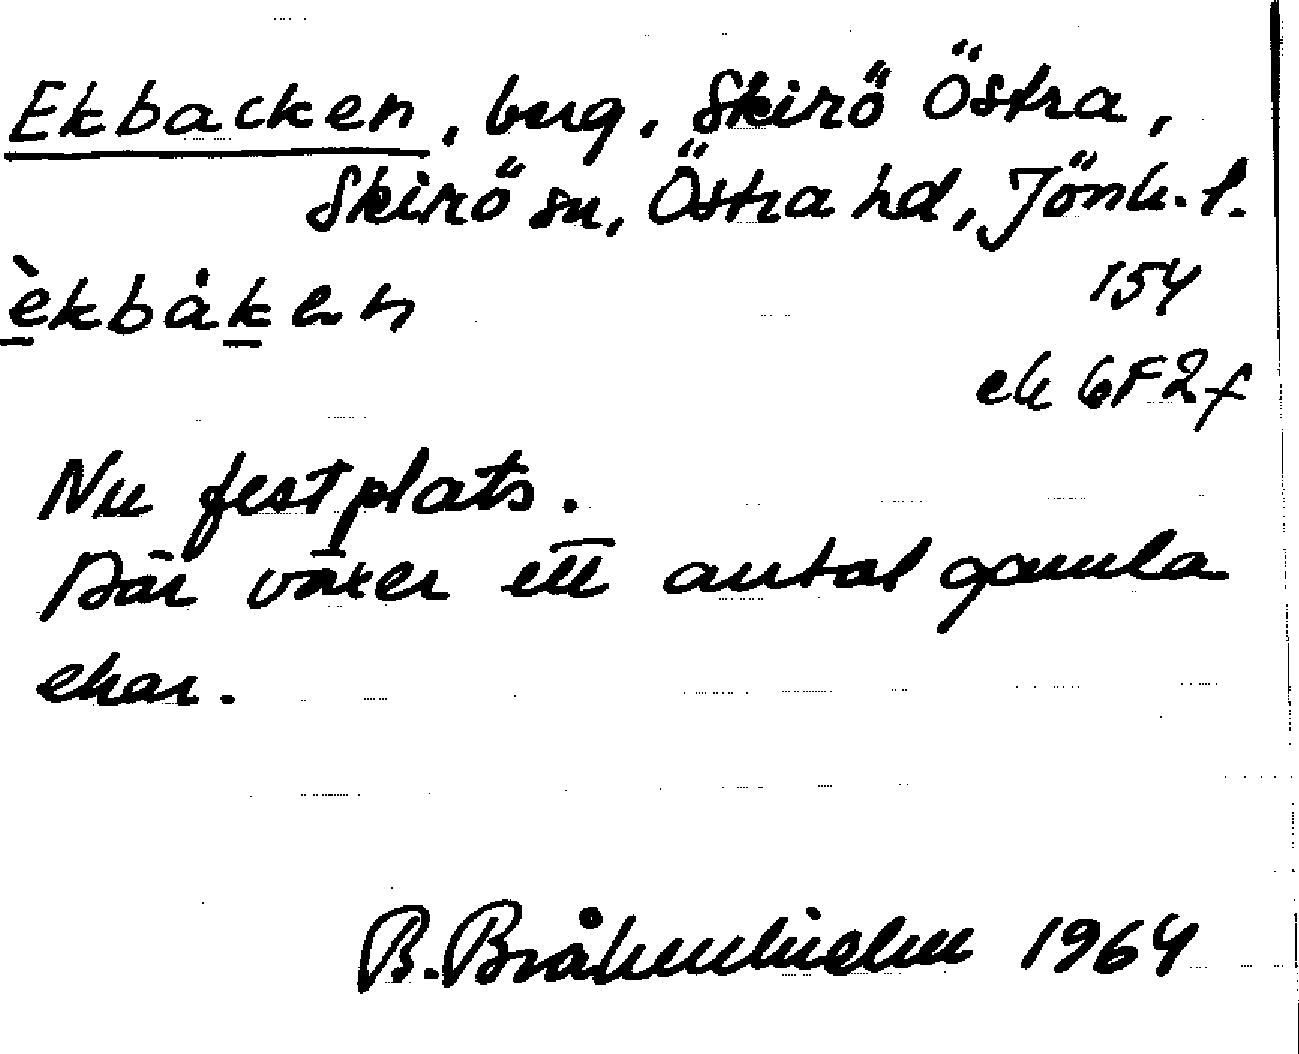 Ekbacken, berg, Skirö Östra,
Skirö sn, Östra hd, Jönk. l.
èkbàken
154
ek 6F2f
Nu festplats.
Där växer ett antal gamla
ekar.
B. 1964